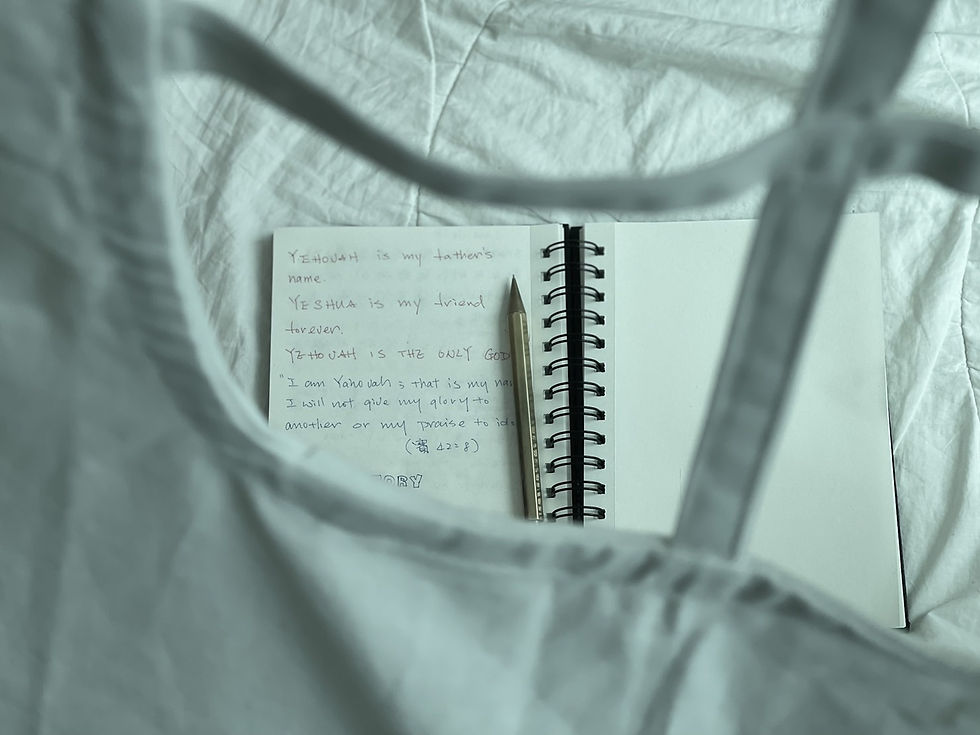 YEHOVAH is my father's
name.
YESHUA is my friend
forever.
YEHOVAH IS THE ONLY GOD
"I am Yahovah ; that is my
I will not give my glory to
another or my praise to
42:8)